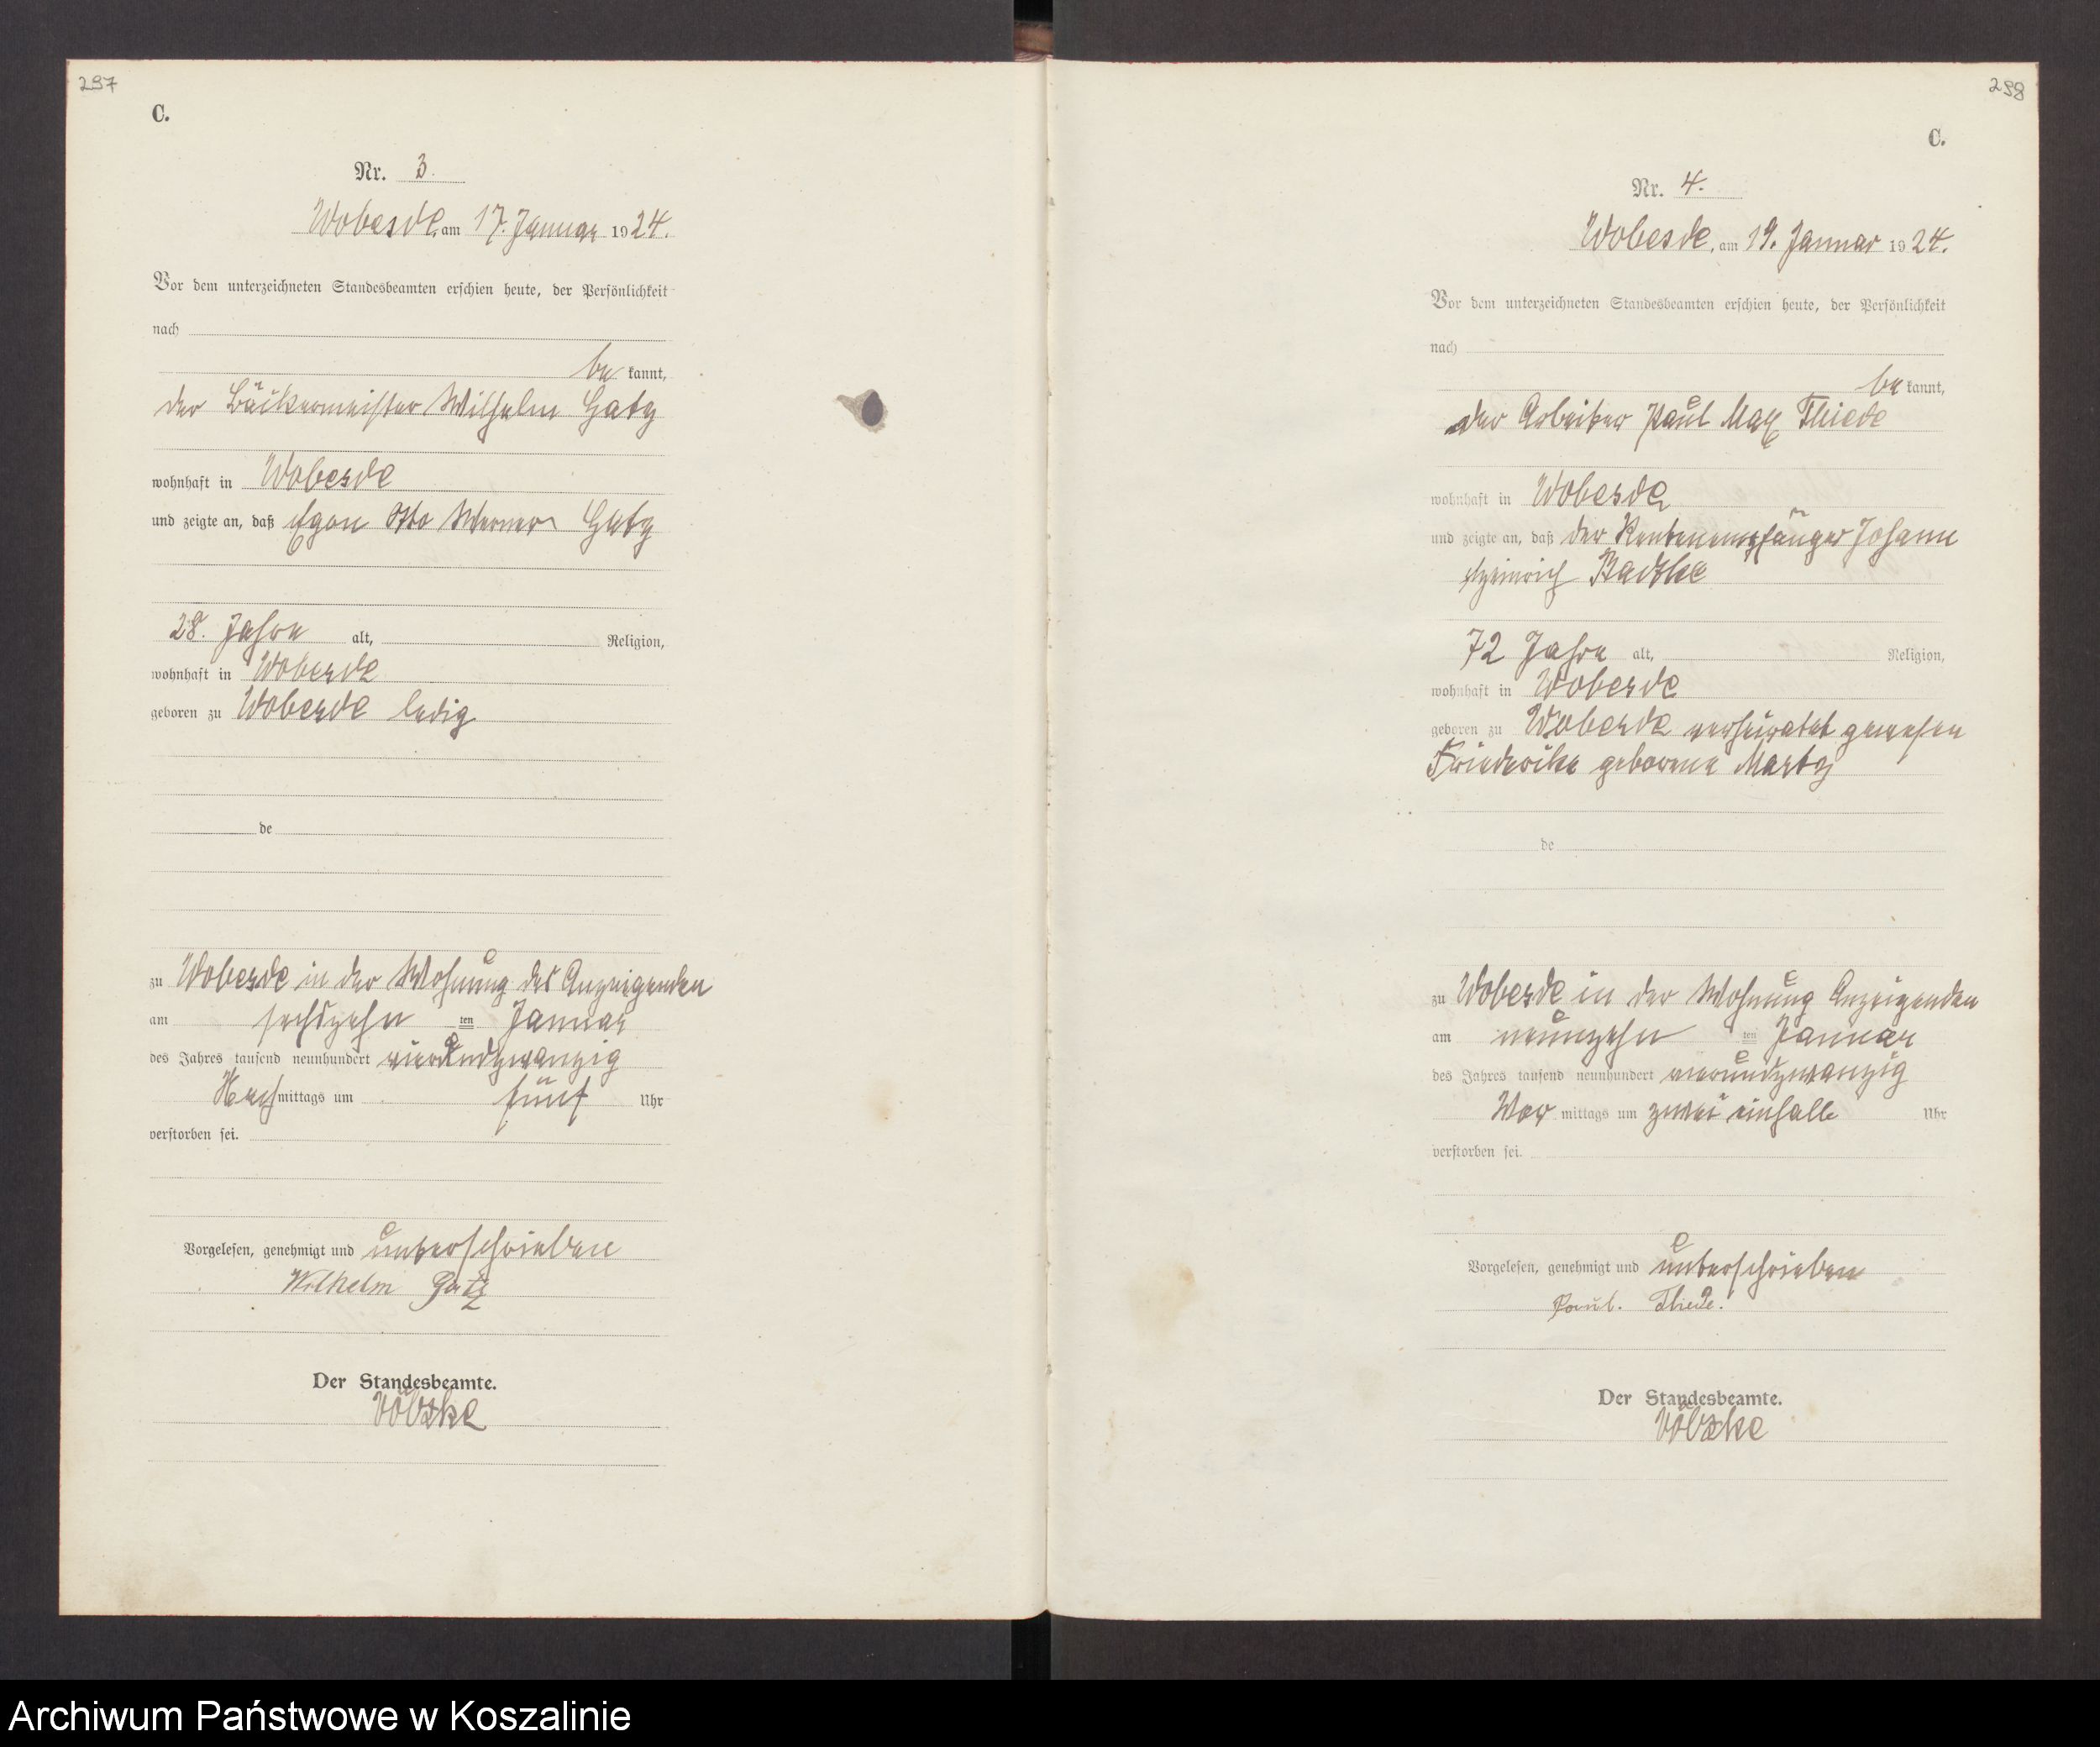 297
C.
Nr. 3.
Wobesde, am 17. Januar 1924.
Vor dem unterzeichneten Standesbeamten erschien heute, der Persönlichkeit
nach
be kannt,
der Bäckermeister Wilhelm Gatz
wohnhaft in Wobesde
und zeigte an, daß Egon Otto Werner Gatz
28. Jahre alt, Religion,
wohnhaft in Wobesde
geboren zu Wobesde ledig
de
zu Wobesde in der Wohnung des Anzeigenden
am sechszehn ten Januar
des Jahres tausend neunhundert vierundzwanzig
Nach mittags um fünf Uhr
verstorben sei.
Vorgelesen, genehmigt und unterschrieben
Wilhelm Gatz
Der Standesbeamte.
Völzke
298
C.
Nr. 4.
Wobesde, am 19. Januar 1924.
Vor dem unterzeichneten Standesbeamten erschien heute, der Persönlichkeit
nach
be kannt,
der Arbeiter Paul Max Thiede
wohnhaft in Wobesde
und zeigte an, daß der Rentenempfänger Johann
Heinrich Radtke
72 Jahre alt, Religion,
wohnhaft in Wobesde
geboren zu Wobesde verheiratet gewesen
Friederike geborene
de
zu Wobesde in der Wohnung Anzeigenden
am neunzehn ten Januar
des Jahres tausend neunhundert vierundzwanzig
Vor mittags um zwei einhalb Uhr
verstorben sei.
Vorgelesen, genehmigt und unterschrieben
Paul. Thiede.
Der Standesbeamte.
Völzke
Archiwum Państwowe w Koszalinie